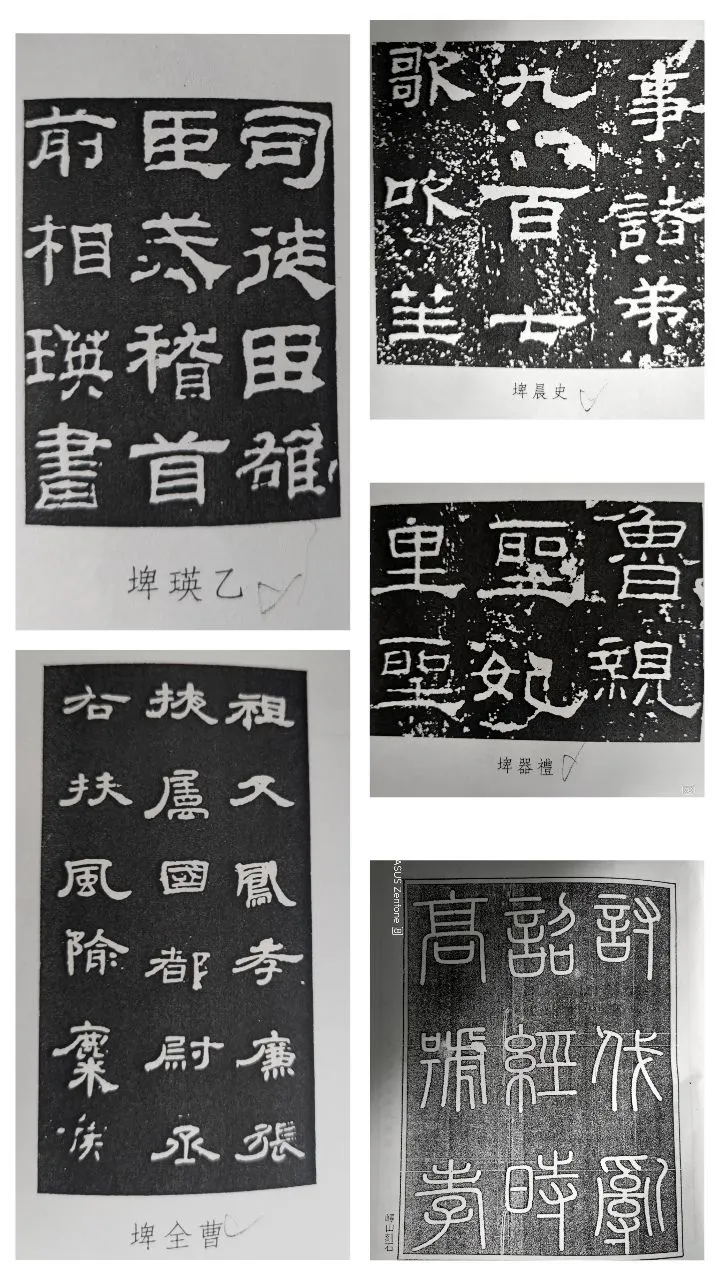 司徒臣雄
臣戒稽首
前相瑛書
乙瑛碑
事諸弟
九百七
歌吹笙
史晨碑
魯親
聖妃
里聖
禮器碑
祖父鳳孝廉張
掖屬國都尉丞
右扶風隃麋侯
曹全碑
討伐亂
詔經時
高號孝
嶧山刻石
ASUS Zenfone